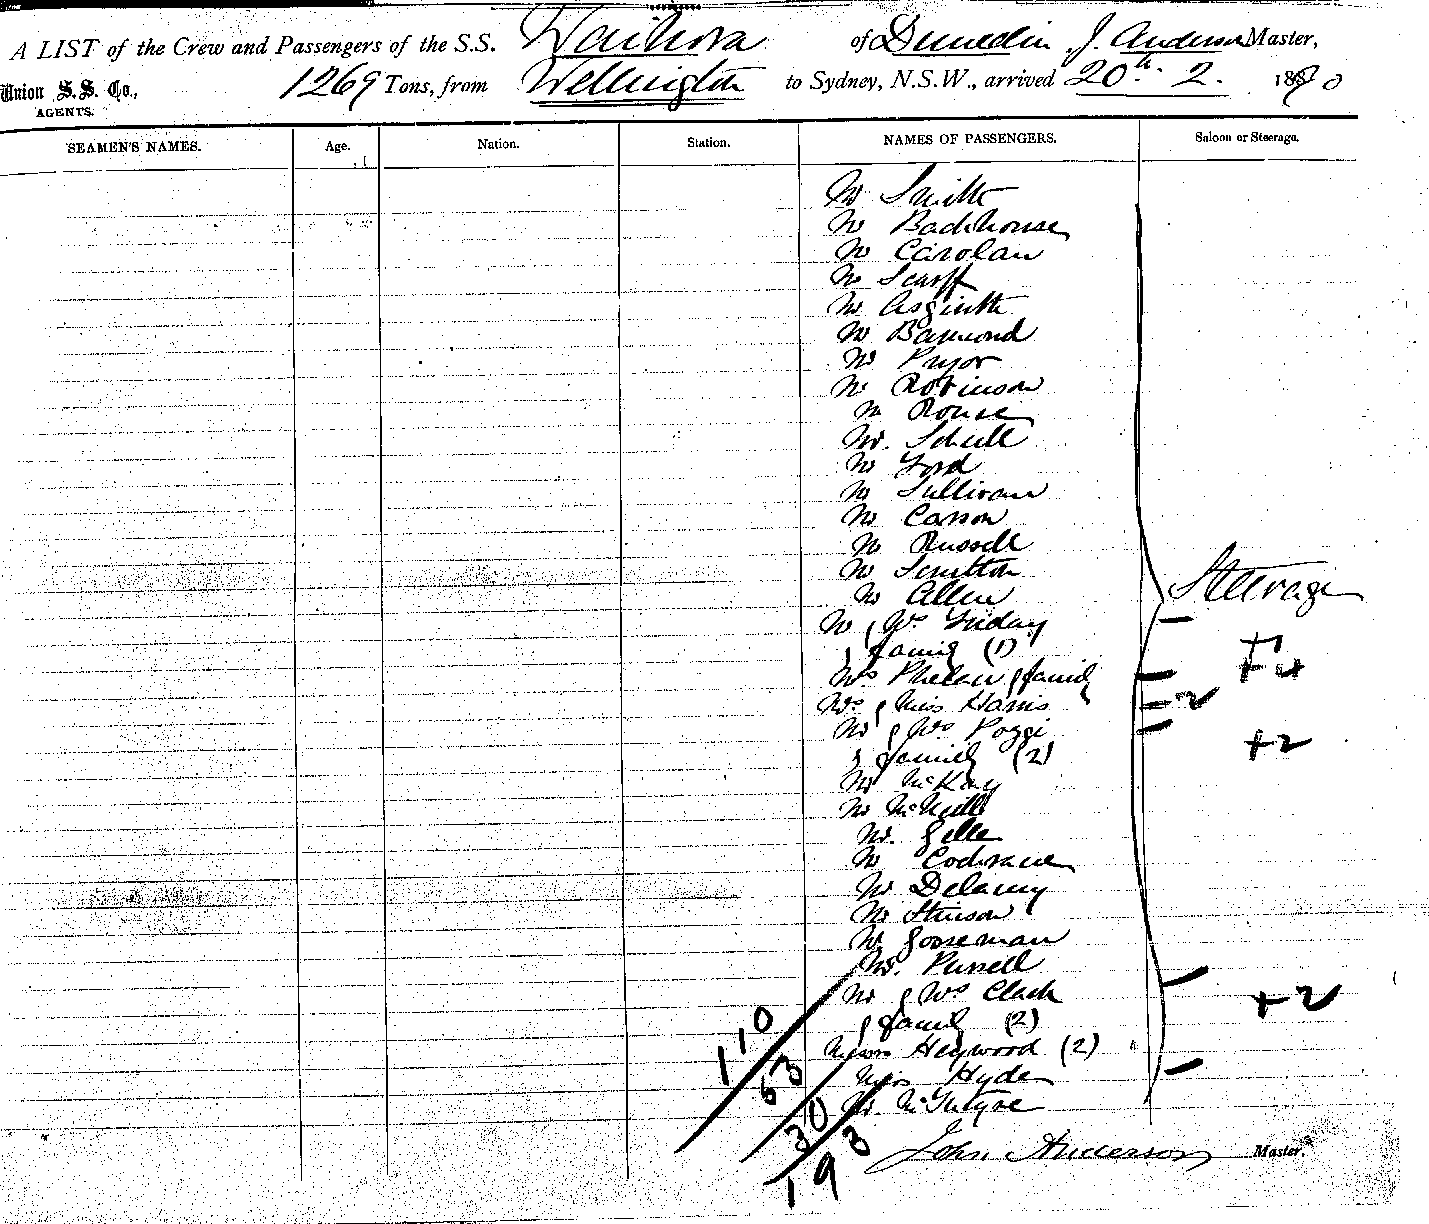 A LIST of the Crew and Passengers of the S.S. Waihora of Dunedin J. Anderson Master,
Union S.S. Co., 1269 Tons, from Wellington to Sydney, N.S.W., arrived 20th. 2. 1890
AGENTS.
SEAMEN'S NAMES. Age. Nation. Station. NAMES OF PASSENGERS. Saloon or Steerage.
Mr Smith
Mr Backhouse
Mr Carolan
Mr Scarff
Mr Asquith
Mr Baymond
Mr Pryor
Mr Robinson
Mr Rouse
Mr. Schell
Mr Ford
Mr Sullivan
Mr Carson
Mr Russell
Mr Scrutton
Mr Allen Steerage
Mr & Mrs Friday
& family (1) +1
Mrs Phelan & family +4
Mrs & Miss Harris 2
Mr & Mrs Poggi
& family (2) +2
Mr McKay
Mr McNeill
Mr. Gelle
Mr Cochrane
Mr Delaney
Mr Stinson
Mr Gooseman
Mr. Purnell
Mr & Mrs Clack +2
& family (2)
Misses Heywood (2)
Miss Hyde
Mr. McIntyre
110
63
20
193
John Anderson Master.